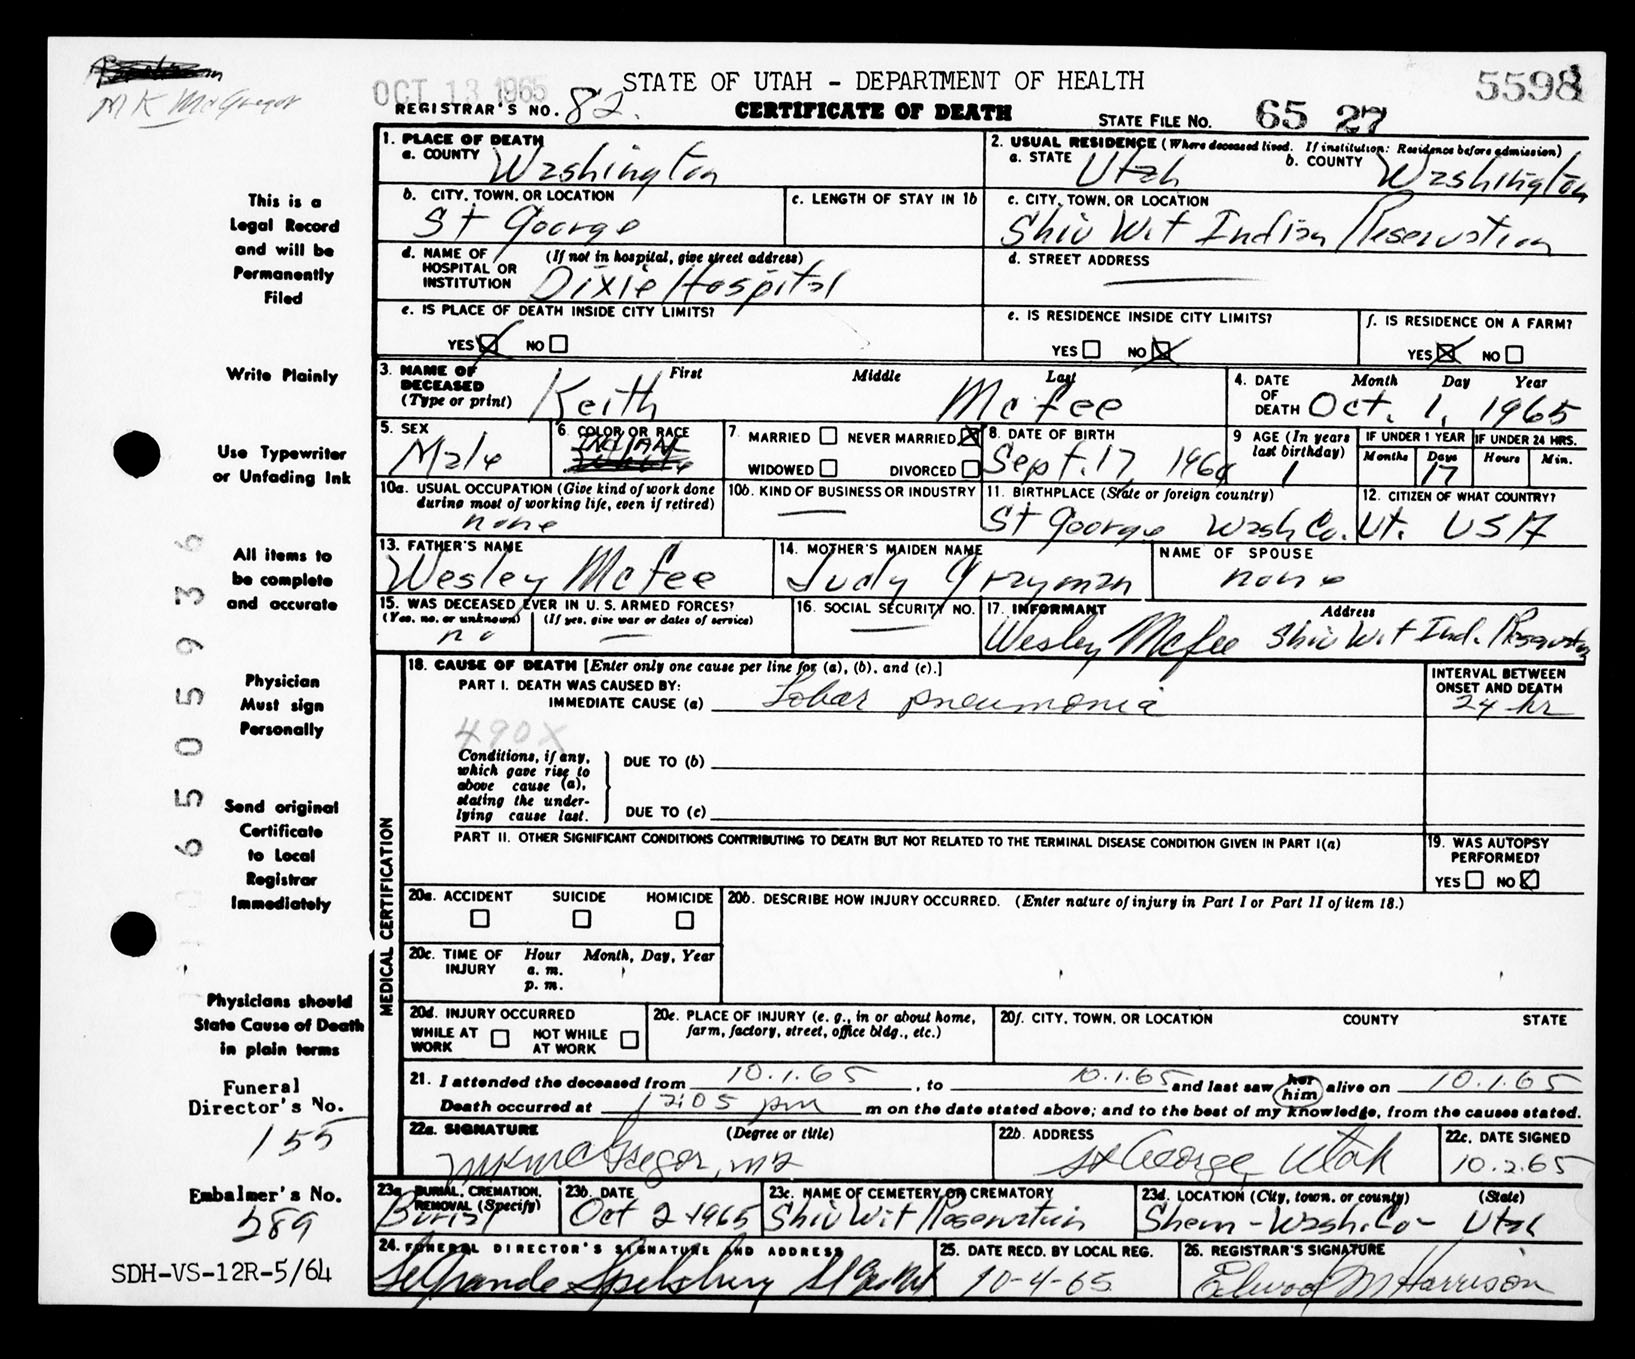 M K McGregor
OCT 13 1965
STATE OF UTAH - DEPARTMENT OF HEALTH
5598
REGISTRAR'S NO. 82.
CERTIFICATE OF DEATH
STATE FILE NO. 65 27
This is a
Legal Record
and will be
Permanently
Filed
Write Plainly
Use Typewriter
or Unfading Ink
All items to
be complete
and accurate
Physician
Must sign
Personally
Send original
Certificate
to Local
Registrar
Immediately
Physicians should
State Cause of Death
in plain terms
Funeral
Director's No.
155
Embalmer's No.
289
SDH-VS-12R-5/64
0 6 5 0 5 9 3 6
1. PLACE OF DEATH
a. COUNTY Washington
2. USUAL RESIDENCE (Where deceased lived. If institution: Residence before admission)
a. STATE Utah b. COUNTY Washington
b. CITY, TOWN, OR LOCATION
St George
c. LENGTH OF STAY IN 1b
c. CITY, TOWN, OR LOCATION
Shiv Wit Indian Reservation
d. NAME OF HOSPITAL OR INSTITUTION (If not in hospital, give street address)
Dixie Hospital
d. STREET ADDRESS
e. IS PLACE OF DEATH INSIDE CITY LIMITS?
YES NO
e. IS RESIDENCE INSIDE CITY LIMITS?
YES NO
f. IS RESIDENCE ON A FARM?
YES NO
3. NAME OF DECEASED (Type or print)
First Middle Last
Keith McFee
4. DATE OF DEATH Month Day Year
Oct. 1, 1965
5. SEX
Male
6. COLOR OR RACE
INDIAN
7 MARRIED NEVER MARRIED
WIDOWED DIVORCED
8. DATE OF BIRTH
Sept. 17 1964
9 AGE (In years last birthday)
1
IF UNDER 1 YEAR
Months Days
17
IF UNDER 24 HRS.
Hours Min.
10a. USUAL OCCUPATION (Give kind of work done during most of working life, even if retired)
none
10b. KIND OF BUSINESS OR INDUSTRY
11. BIRTHPLACE (State or foreign country)
St George Wash Co. Ut.
12. CITIZEN OF WHAT COUNTRY?
USA
13. FATHER'S NAME
Wesley McFee
14. MOTHER'S MAIDEN NAME
Judy Grayman
NAME OF SPOUSE
none
15. WAS DECEASED EVER IN U. S. ARMED FORCES?
(Yes, no, or unknown) (If yes, give war or dates of service)
no
16. SOCIAL SECURITY NO.
17. INFORMANT Address
Wesley McFee Shiv Wit Ind. Reservation
MEDICAL CERTIFICATION
18. CAUSE OF DEATH [Enter only one cause per line for (a), (b), and (c).]
PART I. DEATH WAS CAUSED BY:
IMMEDIATE CAUSE (a) Lobar pneumonia
INTERVAL BETWEEN ONSET AND DEATH
24 hr
490X
Conditions, if any, which gave rise to above cause (a), stating the underlying cause last.
DUE TO (b)
DUE TO (c)
PART II. OTHER SIGNIFICANT CONDITIONS CONTRIBUTING TO DEATH BUT NOT RELATED TO THE TERMINAL DISEASE CONDITION GIVEN IN PART I(a)
19. WAS AUTOPSY PERFORMED?
YES NO
20a. ACCIDENT SUICIDE HOMICIDE
20b. DESCRIBE HOW INJURY OCCURRED. (Enter nature of injury in Part I or Part II of item 18.)
20c. TIME OF INJURY Hour Month, Day, Year
a. m.
p. m.
20d. INJURY OCCURRED
WHILE AT WORK NOT WHILE AT WORK
20e. PLACE OF INJURY (e. g., in or about home, farm, factory, street, office bldg., etc.)
20f. CITY, TOWN, OR LOCATION COUNTY STATE
21. I attended the deceased from 10.1.65, to 10.1.65 and last saw her him alive on 10.1.65
Death occurred at 12:05 pm m on the date stated above; and to the best of my knowledge, from the causes stated.
22a. SIGNATURE (Degree or title)
MK McGregor, MD
22b. ADDRESS
St George, Utah
22c. DATE SIGNED
10.2.65
23a BURIAL, CREMATION, REMOVAL (Specify)
Burial
23b. DATE
Oct 2 1965
23c. NAME OF CEMETERY OR CREMATORY
Shiv Wit Reservation
23d. LOCATION (City, town, or county) (State)
Shem - Wash. Co - Utah
24. FUNERAL DIRECTOR'S SIGNATURE AND ADDRESS
LeGrande Spilsbury St Geo Ut
25. DATE RECD. BY LOCAL REG.
10-4-65
26. REGISTRAR'S SIGNATURE
Elwood M Harrison